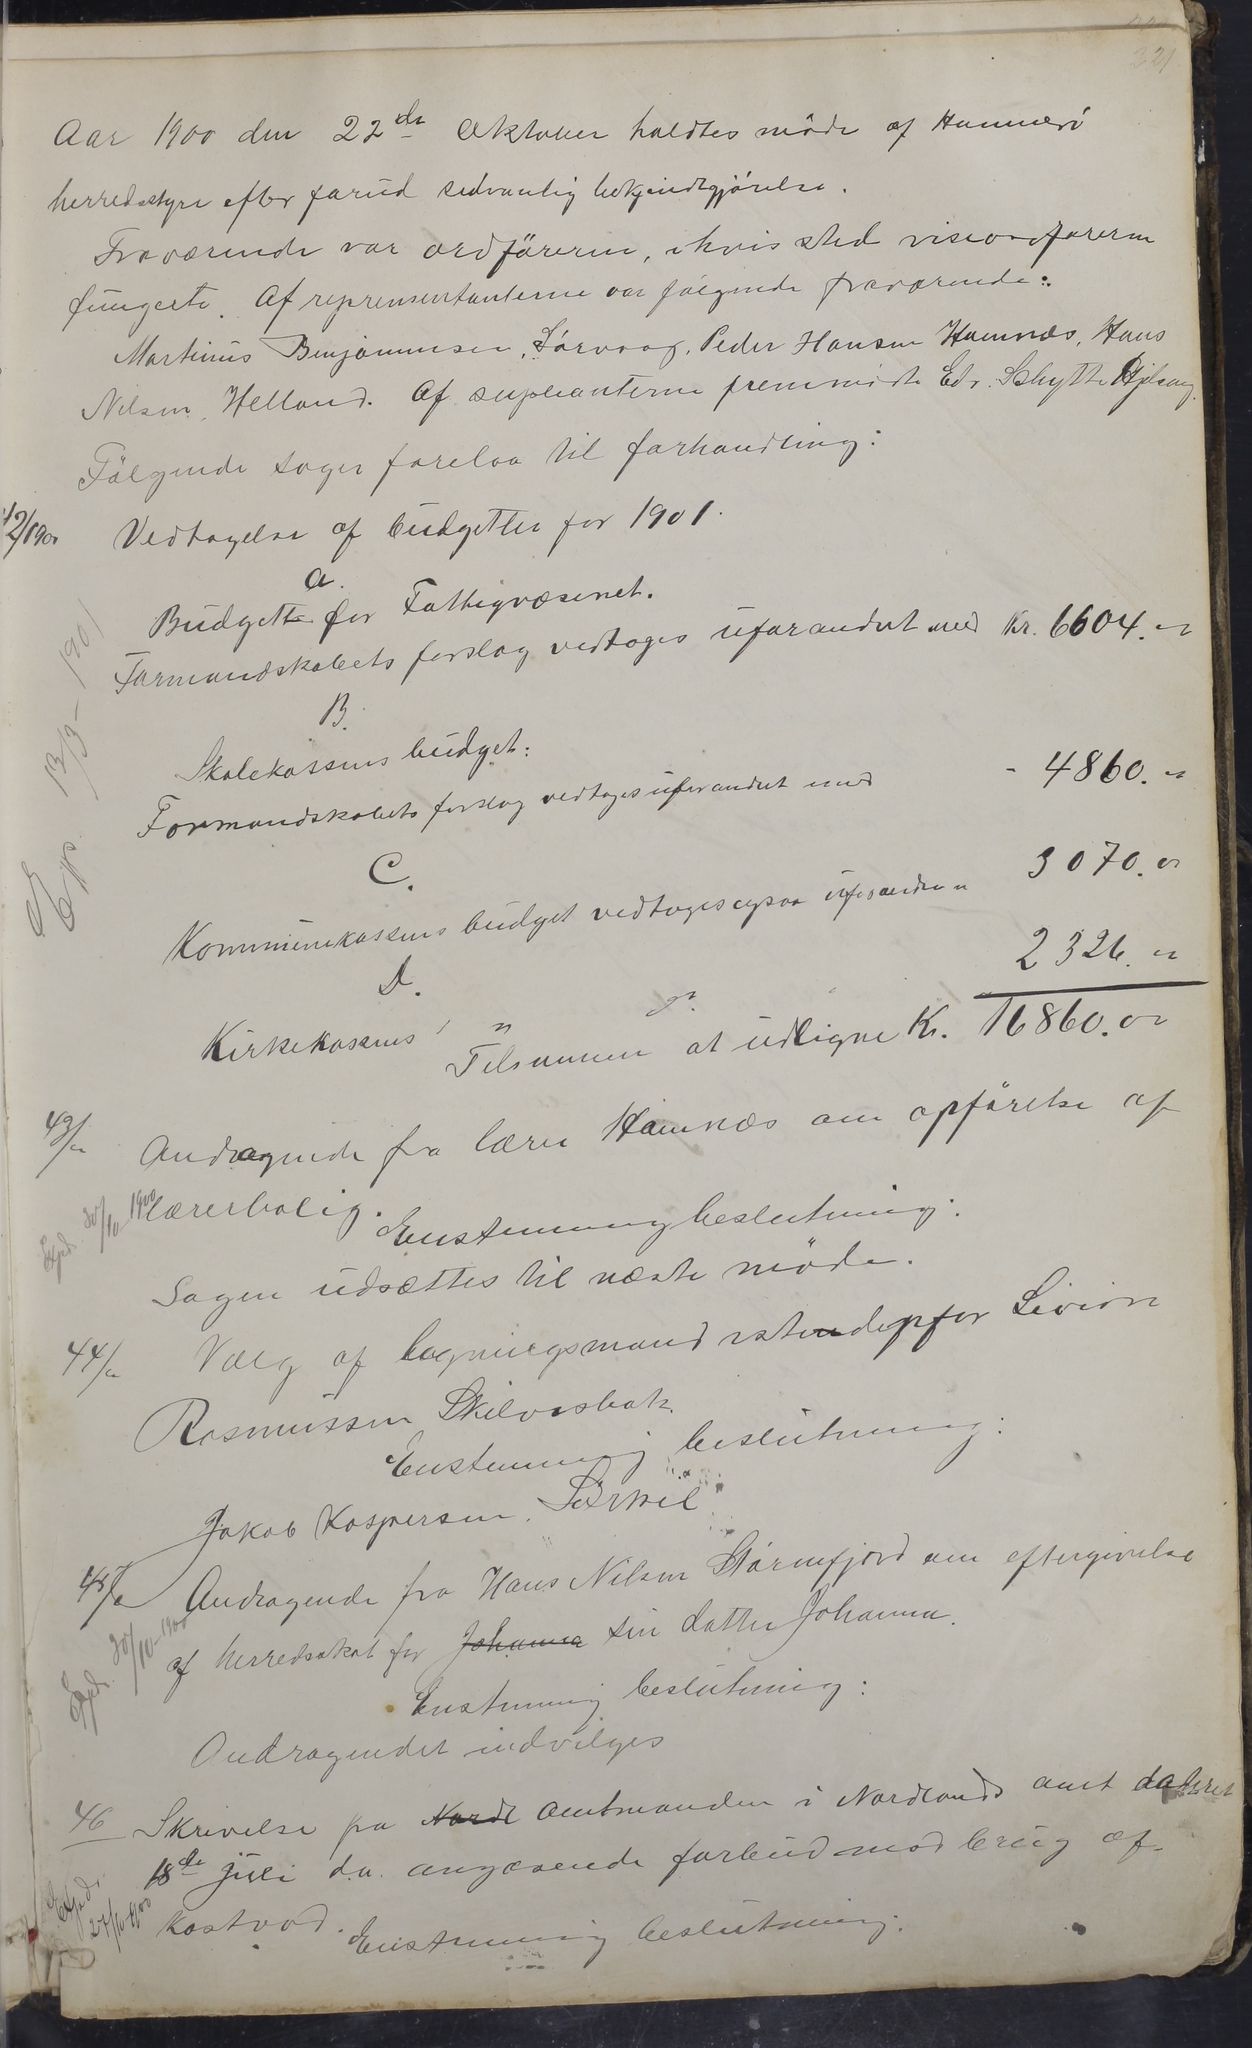 321.
Aar 1900 den 22de Oktober holdtes möde af Hammerö
herredsstyre efter forud sedvanlig bekjendtgjörelse.
Fraværende var ordföreren, i hvis sted viseordföreren
fungerte. Af reprensentanterne var følgende fraværende:
Martinus Benjaminsen, Sörvaag, Peder Hansen Hamnæs, Hans
Nilsen, Helland. Af supleanterne fremmødte Edv. Schytte
Følgende sager forelaa til forhandling:
42/1900 Vedtagelse af budgetter for 1901.
a.
Budgett for Fattigvæsenet.
Formandskabets forslag vedtoges uforandret med Kr. 6604. "
B.
Skolekassens budget:
Formandskabets forslag vedtages uforandret med - 4860. "
C.
Kommunekassens budget vedtoges ogsaa uforandre " 3070. "
D. 2326. "
Kirkekassens " "
Tilsammen at udligne Kr. 16860. "
Exp. 13/3-1901
43/" Andragende fra lærer Hamnæs om opförelse af
lærerbolig.
Expd. 30/10 1900
Enstemmig beslutning:
Sagen udsættes til næste möde.
44/" Valg af lagningsmand istedenfor Sivion
Rasmussen Skilvasbak.
Enstemmig beslutning:
Jakob Kaspersen, Sörkil
45/" Andragende fra Hans Nilsen Størmfjord om eftergivelse
af herredsskat for Johanna sin datter Johanna.
Expd. 30/10-1900
Enstemmig beslutning:
Andragendet indvilges
46 Skrivelse fra Nordl amtmanden i Nordlands amt dateret
18de juli d.a. angaaende forbud mod brug af
Kastvad.
Expd. 27/10-1900
Enstemmig beslutning: